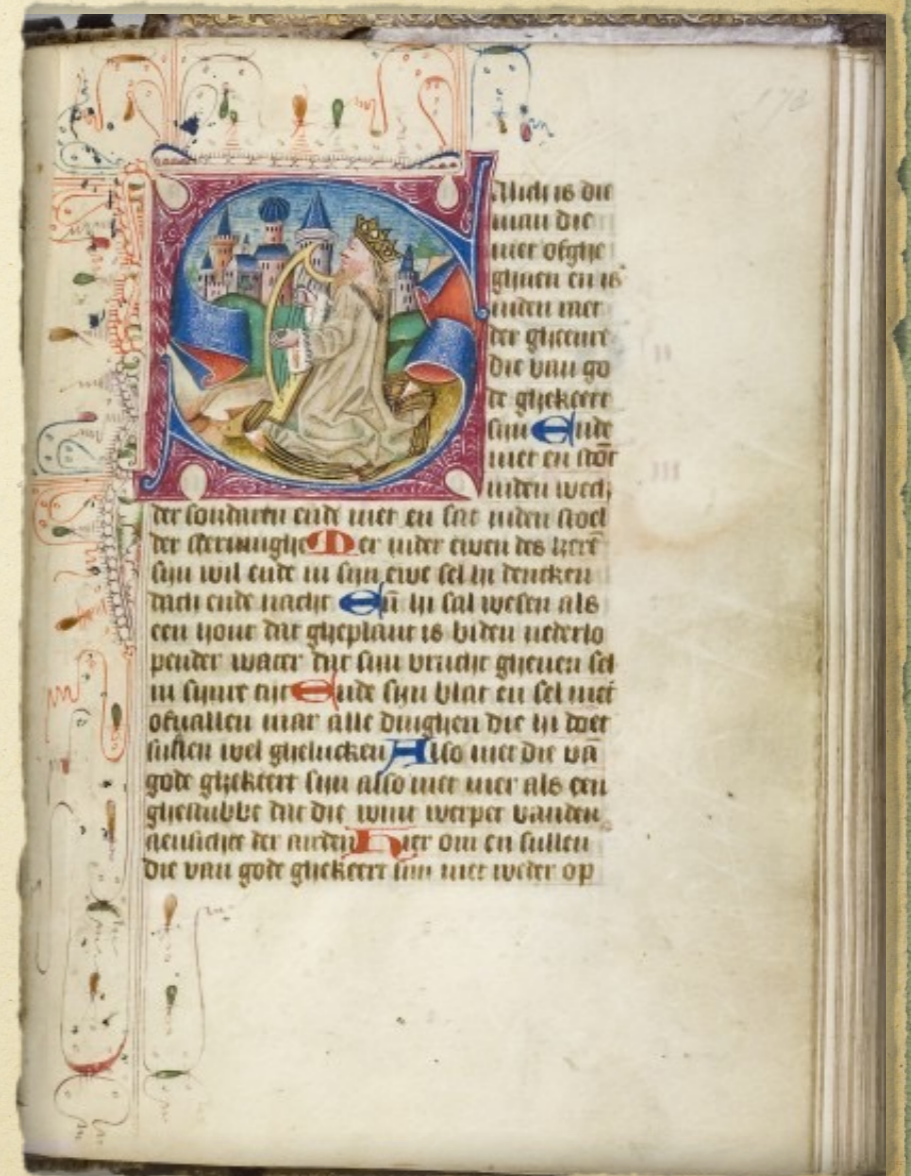 Salich is die
man die
niet ofghe
gheuen en is
inden raet
der gheenre
die van go
de ghekeert
sijn Ende
niet en stōt
inden wech
der sondaren ende niet en sat inden stoel
der steruinghe Mer inder ewen des herē
sijn wil ende in sijn ewe sel hi dencken
dach ende nacht Eñ hi sal wesen als
een hout dat gheplant is biden nederlo
pender water dat sijn vrucht gheuen sel
in sijnre tijt Ende sijn blat en sel niet
ofuallen mar alle dinghen die hi doet
sullen wel ghelucken Also niet die vā
gode ghekeert sijn also niet mer als een
ghestubbe dat die wint werpet vanden
aensichte der aerden Hier om en sullen
die van gode ghekeert sijn niet weder op